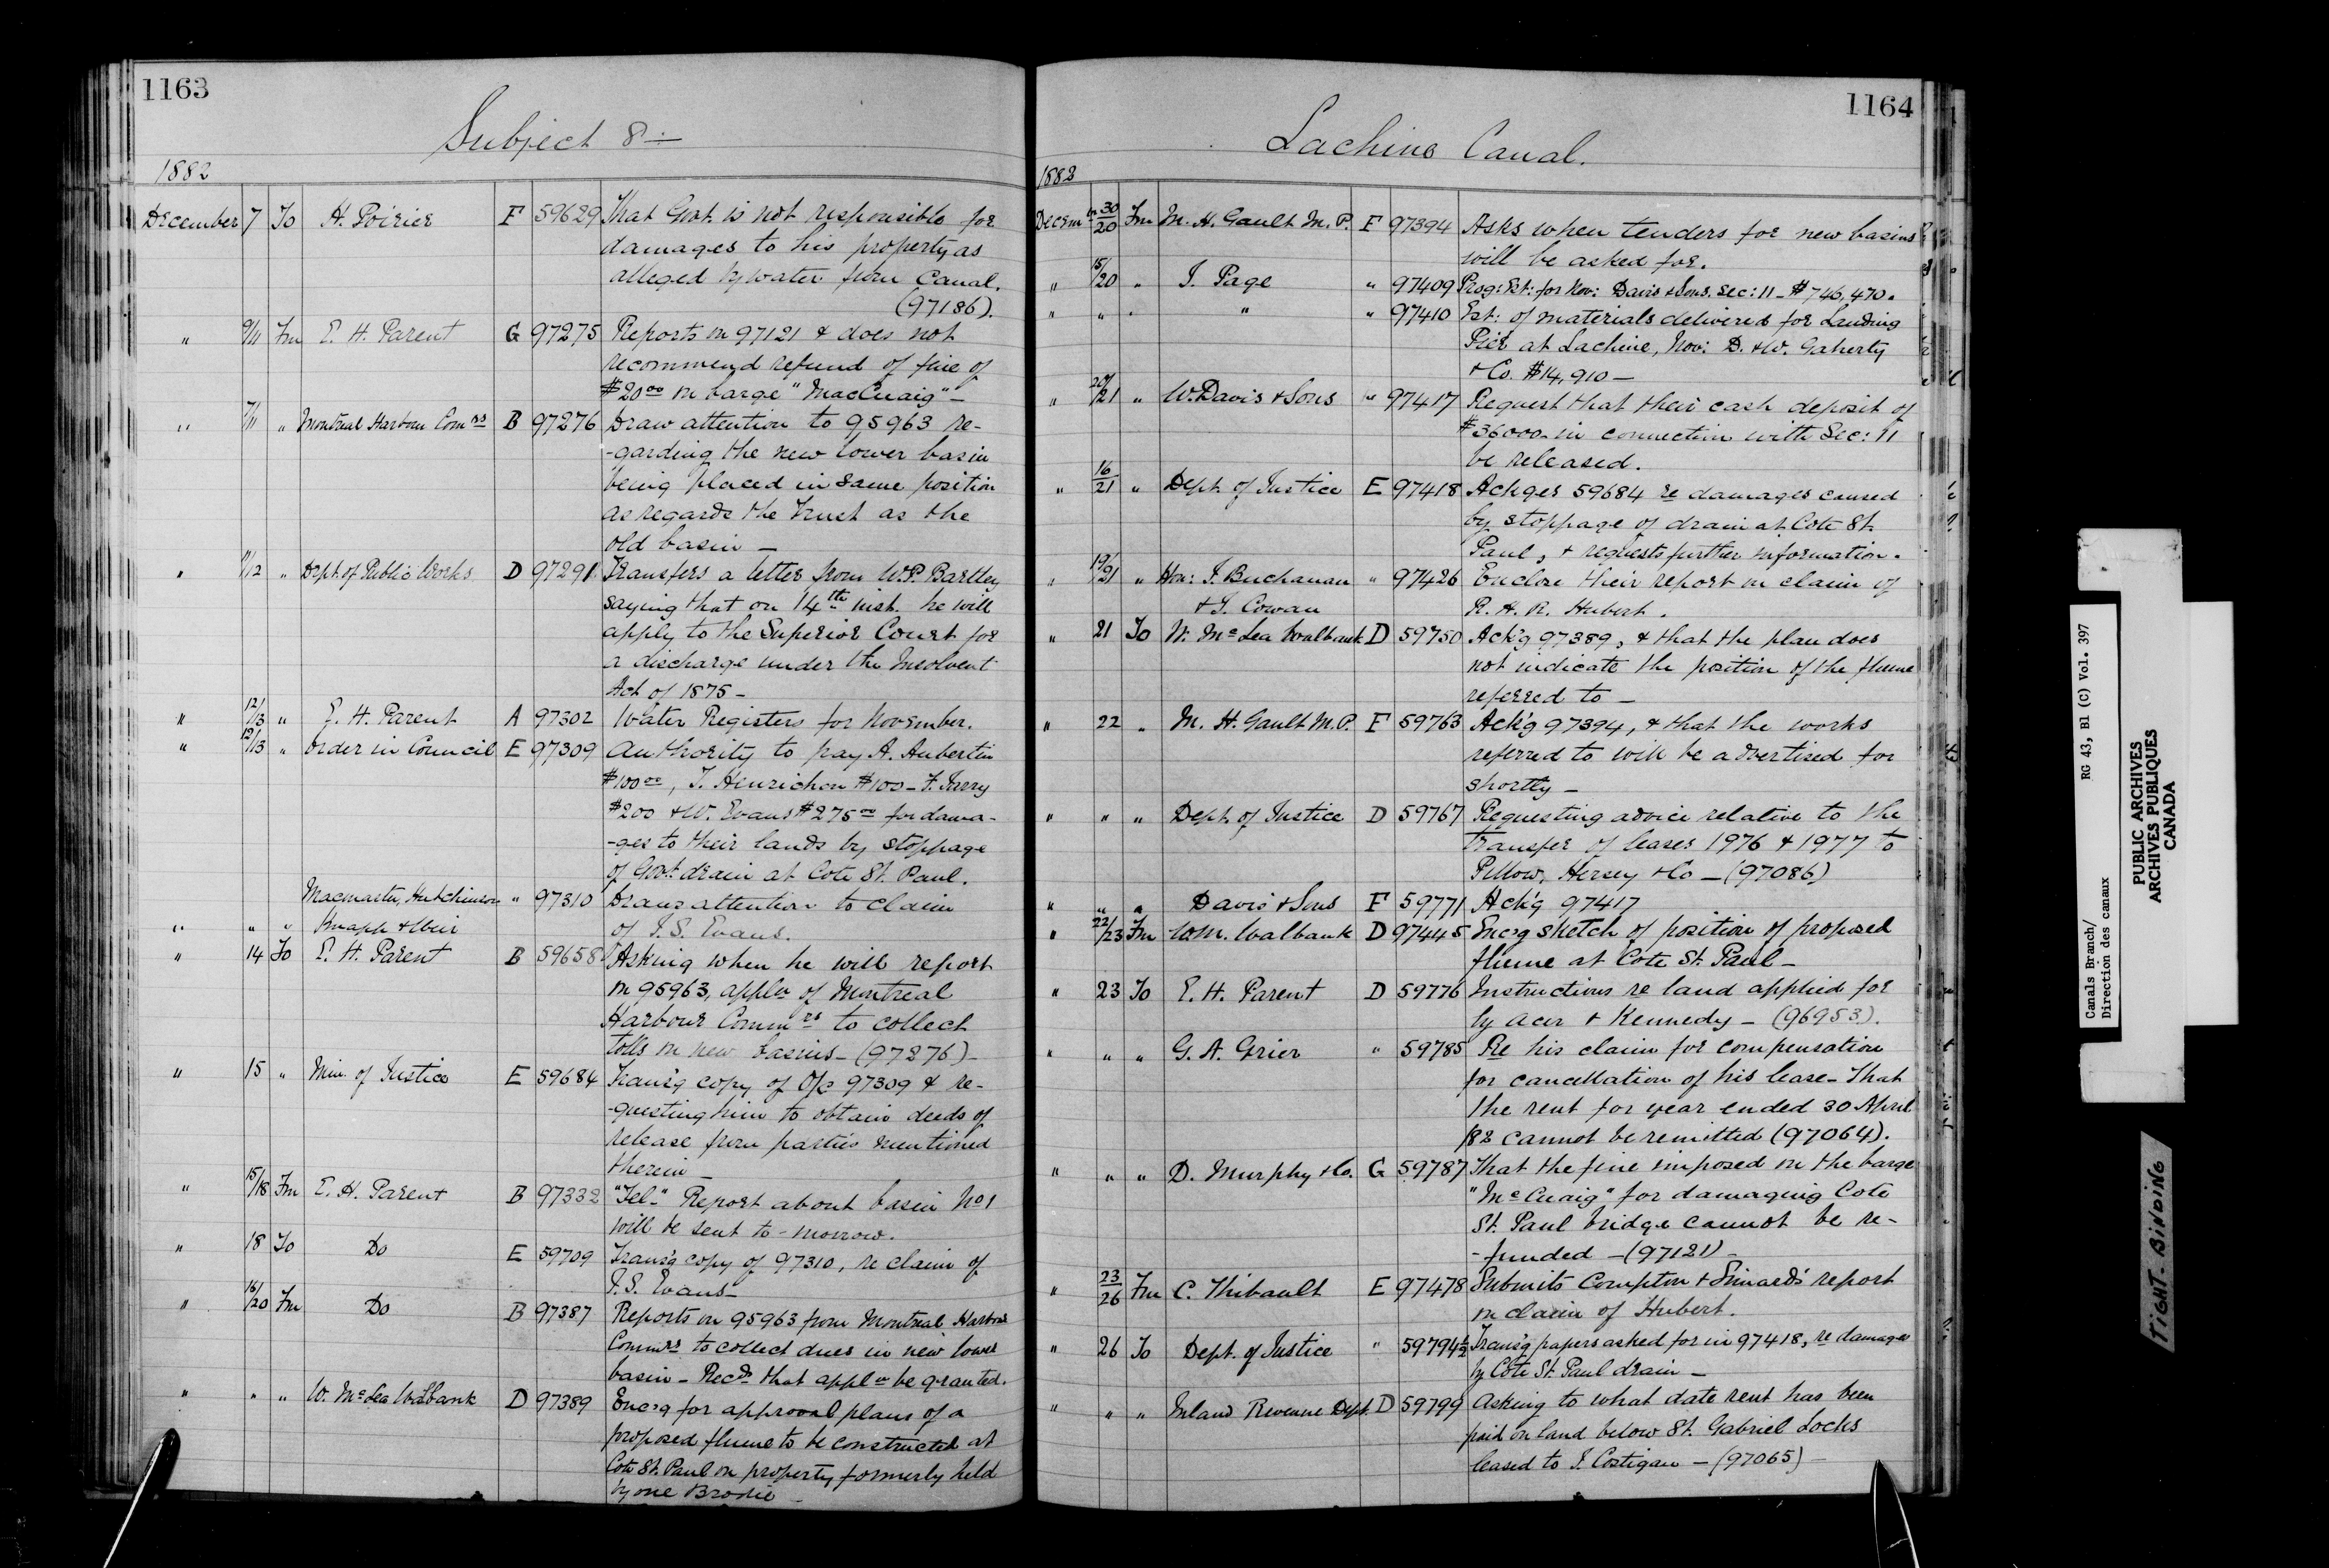 1163
Subject 8 —
1882
December 7 To H. Poirier F 59629 That Govt. is not responsible for
damages to his property as
alleged by water from Canal.
(97186).
" 9/11 Fm E. H. Parent G 97275 Reports on 97121 & does not
recommend refund of fine of
$20 00 on barge "MacCuaig" —
" 7/11 " Montreal Harbour Comrs B 97276 Draw attention to 95963 re-
-garding the new lower basin
being placed in same position
as regards the Trust as the
old basin —
" 11/12 " Dept. of Public Works D 97291 Transfers a letter from W.P. Bartley
saying that on 14th inst. he will
apply to the Superior Court for
a discharge under the Insolvent
Act of 1875 —
" 12/13 " E. H. Parent A 97302 Water Registers for November.
" 12/13 " Order in Council E 97309 Authority to pay A. Aubertin
$100 00, T. Henrichon $100 — F. Jarry
$200 & W. Evans $275 00 for dama-
-ges to their lands by stoppage
of Govt. drain at Cote St. Paul.
Macmaster, Hutchinson " 97310 Draws attention to claim
" " " Knapp & Weir of J. S. Evans.
" 14 To E. H. Parent B 59658 Asking when he will report
on 95963, appln of Montreal
Harbour Commrs to collect
tolls on new basins — (97276) —
" 15 " Min. of Justice E 59684 Trans'g copy of O/c 97309 & re-
-questing him to obtain deeds of
release from parties mentioned
therein —
" 15/18 Fm E. H. Parent B 97332 "Tel." Report about basin No 1
will be sent to-morrow.
" 18 To Do E 59709 Trans'g copy of 97310, re claim of
J. S. Evans —
" 16/20 Fm Do B 97387 Reports on 95963 from Montreal Harbour
Commrs to collect dues in new lower
basin — Recds that appln be granted.
" " " W. McLea Walbank D 97389 Enc'g for approval plans of a
proposed flume to be constructed at
Cote St. Paul on property formerly held
by one Brodie —
1164
Lachine Canal.
1882
Decem 30/20 Fm M. H. Gault M.P. F 97394 Asks when tenders for new basins
will be asked for.
" 15/20 " J. Page " 97409 Prog: Est: for Nov: Davis & Sons. Sec: 11 — $746,470.
" " " " " 97410 Est: of materials delivered for Landing
Pier at Lachine, Nov: D. & W. Gaherty
& Co. $14,910 —
" 20/21 " W. Davis & Sons " 97417 Request that their cash deposit of
$36000 in connection with Sec: 11
be released.
" 16/21 " Dept. of Justice E 97418 Ackges 59684 re damages caused
by stoppage of drain at Cote St.
Paul, & requests further information.
" 19/21 " Hon: J. Buchanan " 97426 Enclose their report on claim of
& J. Cowan R. H. R. Hubert.
" 21 To W. McLea Walbank D 59750 Ack'g 97389, & that the plan does
not indicate the position of the flume
referred to —
" 22 " M. H. Gault M.P. F 59763 Ack'g 97394, & that the works
referred to will be advertised for
shortly —
" " " Dept. of Justice D 59767 Requesting advice relative to the
transfer of leases 1976 & 1977 to
Pillow, Hersey & Co — (97086)
" " " Davis & Sons F 59771 Ack'g 97417
" 22/23 Fm W.M. Walbank D 97445 Enc'g sketch of position of proposed
flume at Cote St. Paul —
" 23 To E. H. Parent D 59776 Instructions re land applied for
by Acer & Kennedy — (96953).
" " " G. A. Grier " 59785 Re his claim for compensation
for cancellation of his lease — That
the rent for year ended 30 April
/82 cannot be remitted (97064).
" " " D. Murphy & Co. G 59787 That the fine imposed on the barge
"McCuaig" for damaging Cote
St. Paul bridge cannot be re-
-funded — (97121) —
" 23/26 Fm C. Thibault E 97478 Submits Compton & Simard's report
on claim of Hubert.
" 26 To Dept. of Justice " 59794½ Trans'g papers asked for in 97418, re damages
by Cote St. Paul drain —
" " " Inland Revenue Dept. D 59799 Asking to what date rent has been
paid on land below St. Gabriel Locks
leased to J. Costigan — (97065) —
Canals Branch/ RG 43, B1 (C) Vol. 397
Direction des canaux
PUBLIC ARCHIVES
ARCHIVES PUBLIQUES
CANADA
TIGHT-BINDING